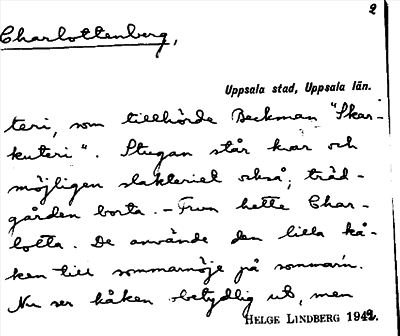 2
Charlottenberg,
Uppsala stad, Uppsala län.
teri, som tillhörde Beckman "Skar-
kuteri". Stugan står kvar och
möjligen slakteriet också, träd-
gården borta. - Frun hette Char-
lotta. De använde den lilla kå-
ken till sommarnöje på sommarn.
Nu ser kåken obetydlig ut, men
HELGE LINDBERG 1942.